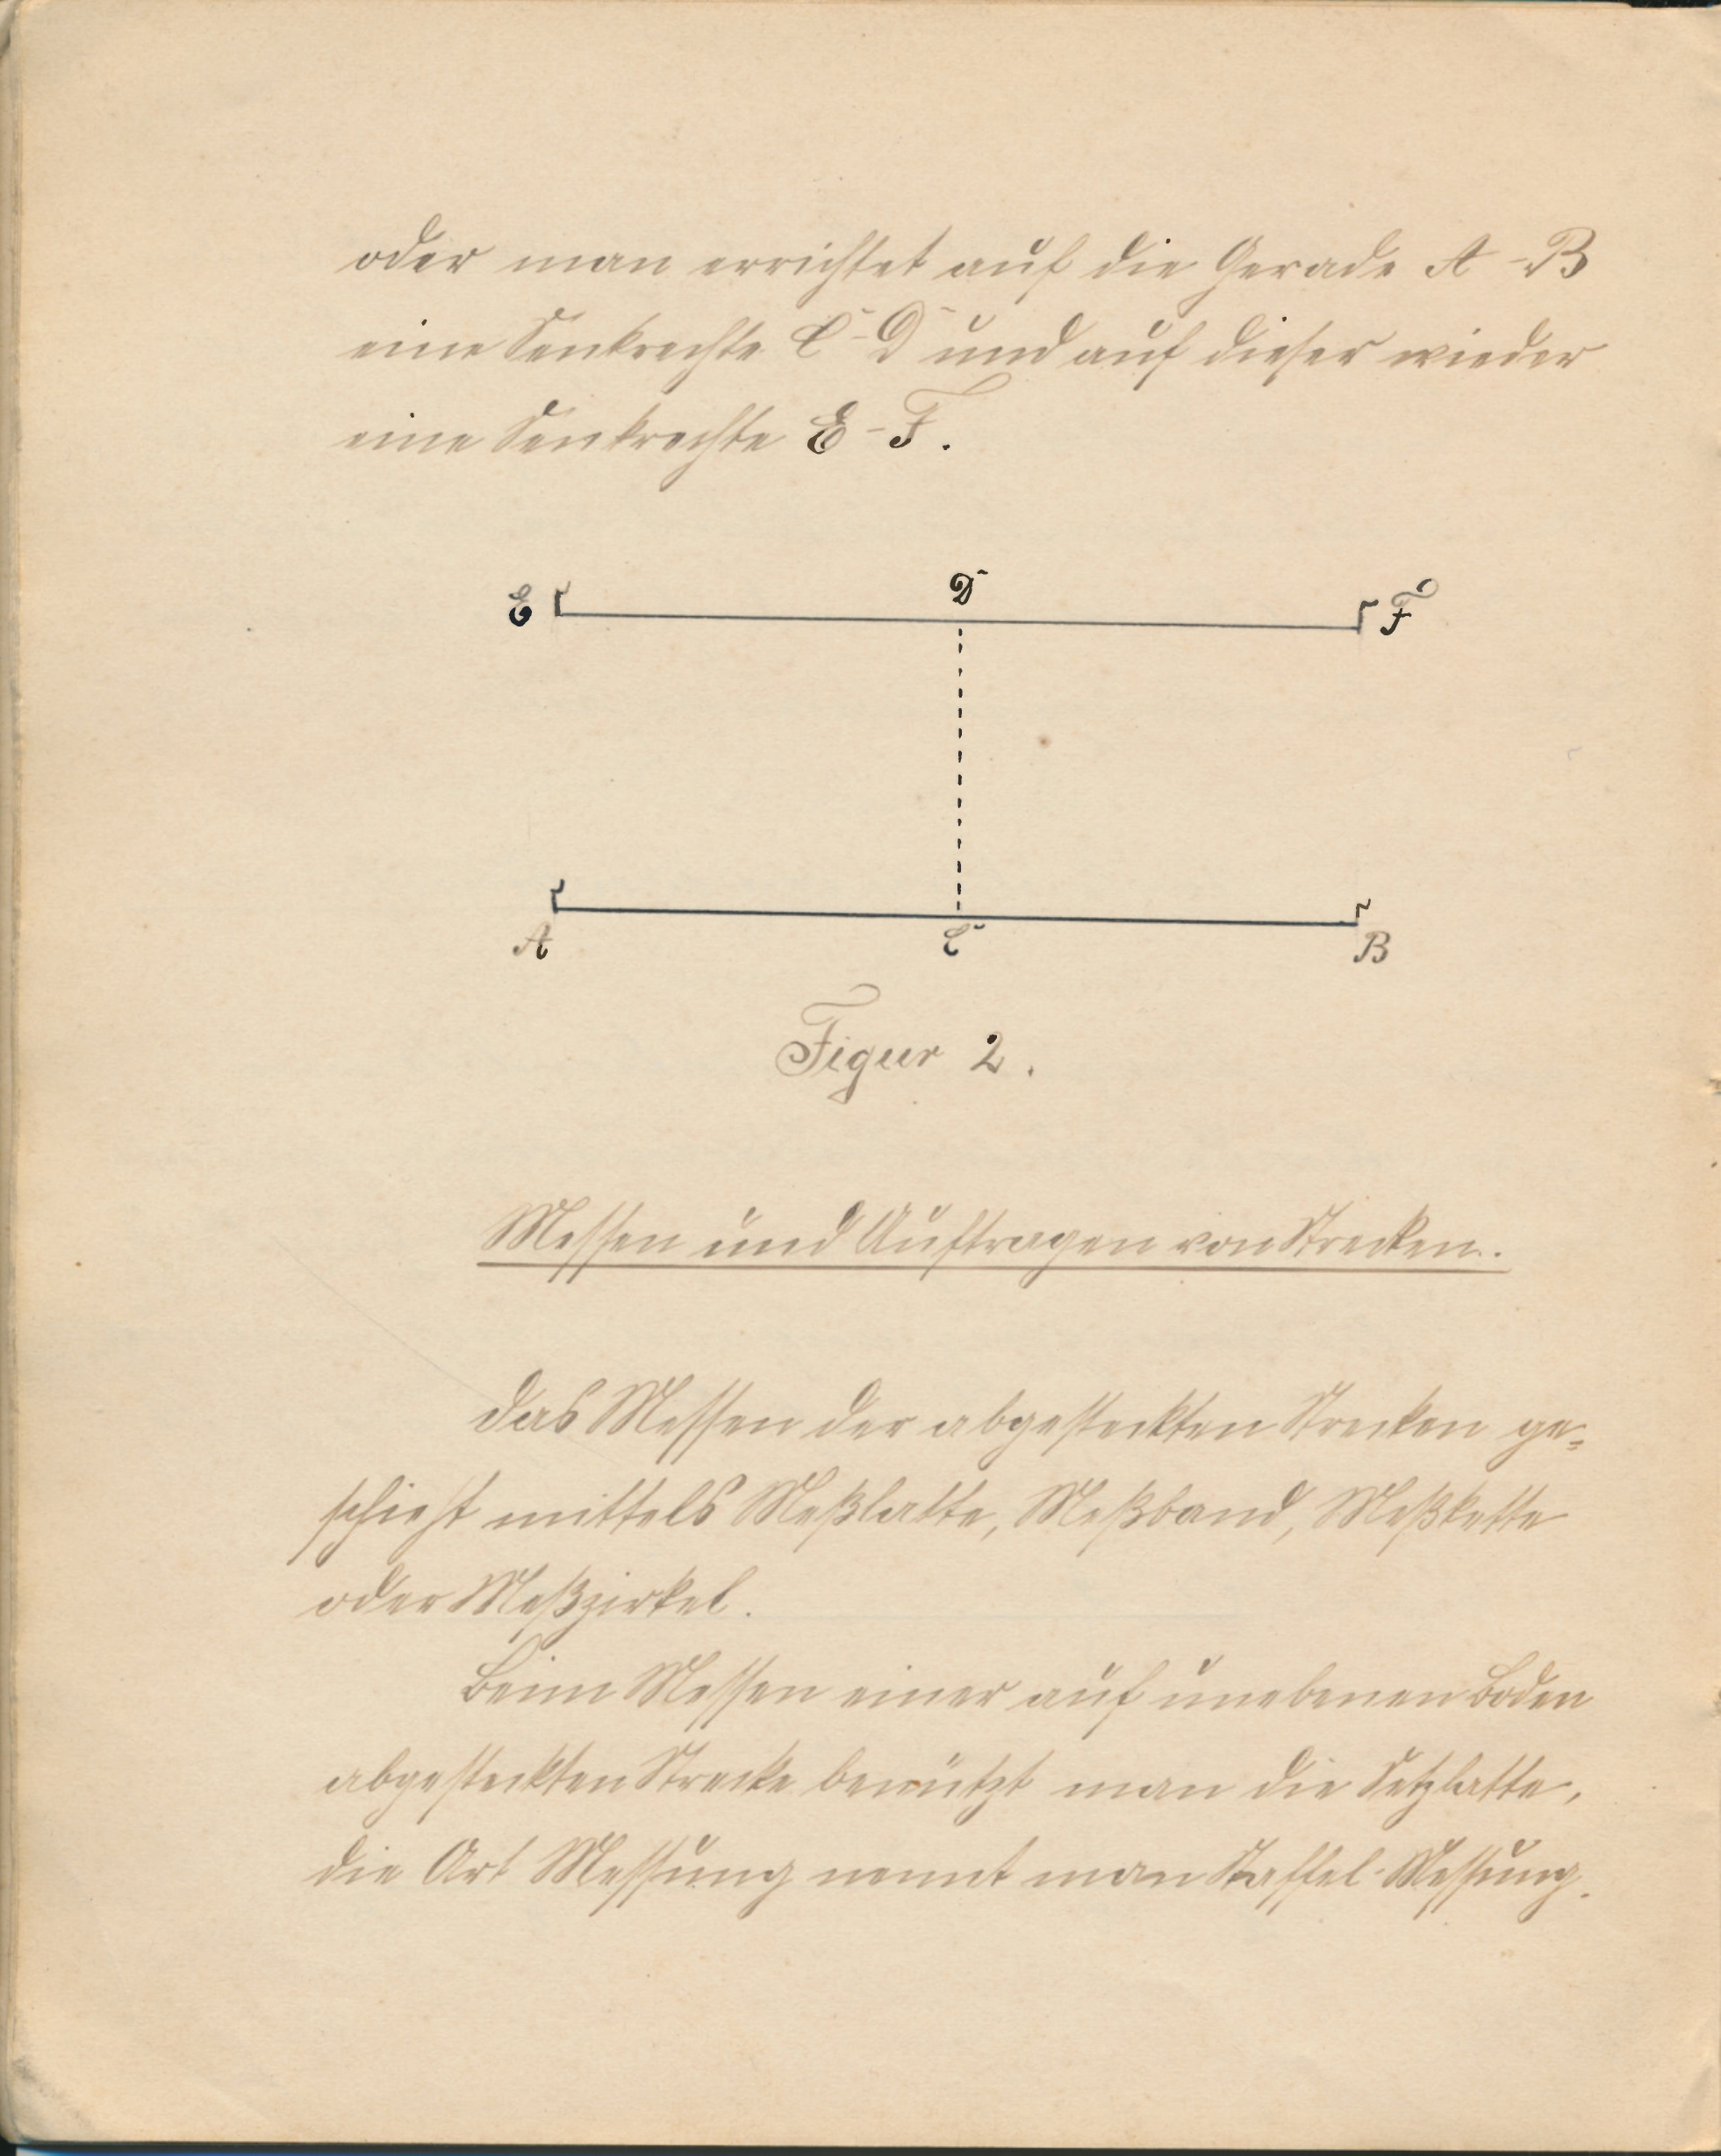 oder man errichtet auf die Gerade A-B
eine Senkrechte C-D und auf dieser wieder
eine Senkrechte E-F.
E D F
A C B
Figur 2.
Messen und Auftragen von Strecken.
Das Messen der abgesteckten Strecken ge-
schieht mittels Meßlatte, Meßband, Meßkette
oder Meßzirkel.
Beim Messen einer auf unebenen Boden
abgesteckten Strecke benützt man die Setzlatte,
die Art Messung nennt man Staffel-Messung.